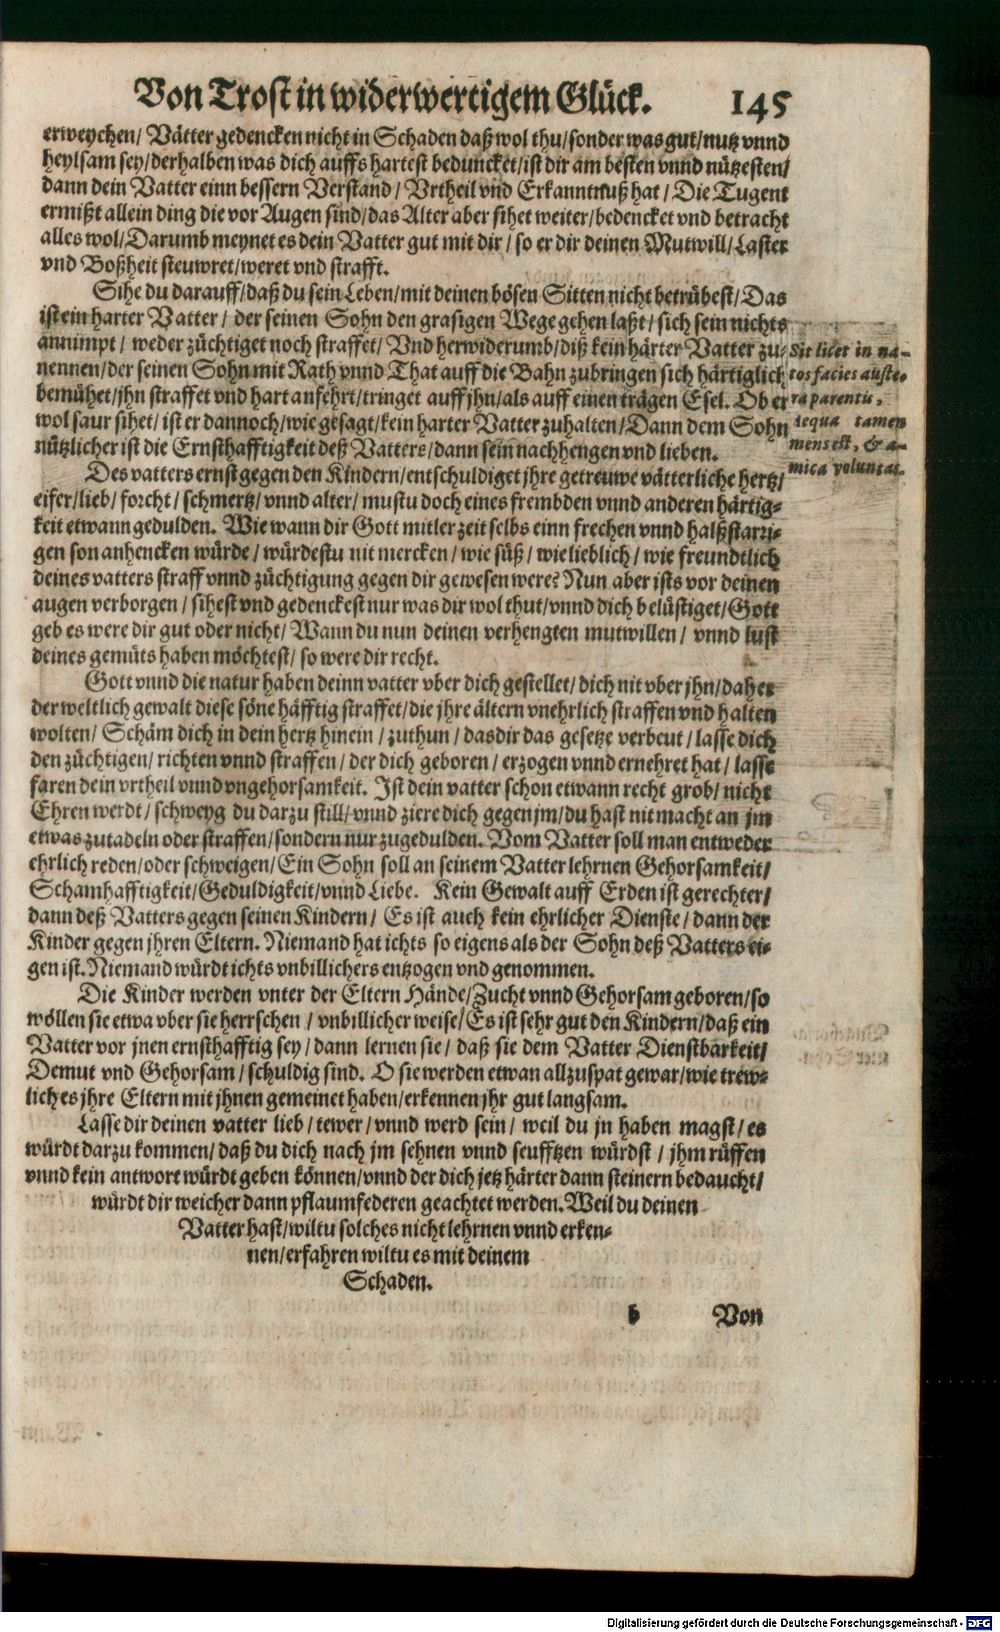 Von Trost in widerwertigem Glück. 145
erweychen/ Vätter gedencken nicht in Schaden daß wol thu/sonder was gut/nutz vnnd
heylsam sey/derhalben was dich auffs hartest beduncket/ist dir am besten vnnd nützesten/
dann dein Vatter einn bessern Verstand/ Vrtheil vnd Erkanntnuß hat/ Die Tugent
ermißt allein ding die vor Augen sind/das Alter aber sihet weiter/bedencket vnd betracht
alles wol/Darumb meynet es dein Vatter gut mit dir/ so er dir deinen Mutwill/Laster
vnd Boßheit steuwret/weret vnd strafft.
Sihe du darauff/daß du sein Leben/mit deinen bösen Sitten nicht betrübest/Das
ist ein harter Vatter/ der seinen Sohn den grasigen Wege gehen laßt/ sich sein nichts
annimpt/ weder züchtiget noch straffet/ Vnd herwiderumb/diß kein härter Vatter zu-
nennen/der seinen Sohn mit Rath vnnd That auff die Bahn zubringen sich härtiglich
bemühet/jhn straffet vnd hart anfehrt/tringet auff jhn/als auff einen trägen Esel. Ob er
wol saur sihet/ ist er dannoch/wie gesagt/kein harter Vatter zuhalten/Dann dem Sohn
nützlicher ist die Ernsthafftigkeit deß Vatters/dann sein nachhengen vnd lieben.
Sit licet in na-
tos facies auste-
ra parentis,
aequa tamen
mens est, & a-
mica voluntas.
Des vatters ernst gegen den Kindern/entschuldiget jhre getreuwe vätterliche hertz/
eifer/lieb/ forcht/ schmertz/ vnnd alter/ mustu doch eines frembden vnnd anderen härtig-
keit etwann gedulden. Wie wann dir Gott mitler zeit selbs einn frechen vnnd halßstarri-
gen son anhencken würde/ würdestu nit mercken/ wie süß/ wie lieblich/ wie freundtlich
deines vatters straff vnnd züchtigung gegen dir gewesen were? Nun aber ists vor deinen
augen verborgen/ sihest vnd gedenckest nur was dir wol thut/vnnd dich belüstiget/Gott
geb es were dir gut oder nicht/ Wann du nun deinen verhengten mutwillen/ vnnd lust
deines gemüts haben möchtest/ so were dir recht.
Gott vnnd die natur haben deinn vatter vber dich gestellet/ dich nit vber jhn/daher
der weltlich gewalt diese söne häfftig straffet/die jhre ältern vnehrlich straffen vnd halten
wolten/ Schäm dich in dein hertz hinein/ zuthun/ dasdir das gesetze verbeut/ lasse dich
den züchtigen/ richten vnnd straffen/ der dich geboren/ erzogen vnnd ernehret hat/ lasse
faren dein vrtheil vnnd vngehorsamkeit. Ist dein vatter schon etwann recht grob/ nicht
Ehren werdt/ schweyg du darzu still/vnnd ziere dich gegen jm/du hast nit macht an jm
etwas zutadeln oder straffen/sondern nur zugedulden. Vom Vatter soll man entweder
ehrlich reden/oder schweigen/Ein Sohn soll an seinem Vatter lehrnen Gehorsamkeit/
Schamhafftigkeit/Geduldigkeit/vnnd Liebe. Kein Gewalt auff Erden ist gerechter/
dann deß Vatters gegen seinen Kindern/ Es ist auch kein ehrlicher Dienste/ dann der
Kinder gegen jhren Eltern. Niemand hat ichts so eigens als der Sohn deß Vatters ei-
gen ist. Niemand würdt ichts vnbillichers entzogen vnd genommen.
Die Kinder werden vnter der Eltern Hände/Zucht vnnd Gehorsam geboren/so
wöllen sie etwa vber sie herrschen/ vnbillicher weise/Es ist sehr gut den Kindern/daß ein
Vatter vor jnen ernsthafftig sey/ dann lernen sie/ daß sie dem Vatter Dienstbarkeit/
Demut vnd Gehorsam/ schuldig sind. O sie werden etwan allzuspat gewar/wie trew-
lich es jhre Eltern mit jhnen gemeinet haben/erkennen jhr gut langsam.
Lasse dir deinen vatter lieb/ tewer/ vnnd werd sein/ weil du jn haben magst/ es
würdt darzu kommen/ daß du dich nach jm sehnen vnnd seufftzen würdst/ jhm rüffen
vnnd kein antwort würdt geben können/vnnd der dich jetz härter dann steinern bedaucht/
würdt dir weicher dann pflaumfederen geachtet werden. Weil du deinen
Vatter hast/wiltu solches nicht lehrnen vnnd erken-
nen/erfahren wiltu es mit deinem
Schaden.
b Von
Digitalisierung gefördert durch die Deutsche Forschungsgemeinschaft - DFG